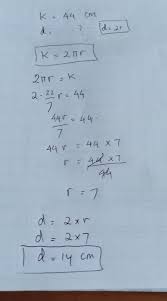 K = 44 cm
d = ? d = 2r
K = 2πr
2πr = K
2 · 22/7 r = 44
44r/7 = 44
44 r = 44 × 7
r = 44 × 7/44
r = 7
d = 2 × r
d = 2 × 7
d = 14 cm